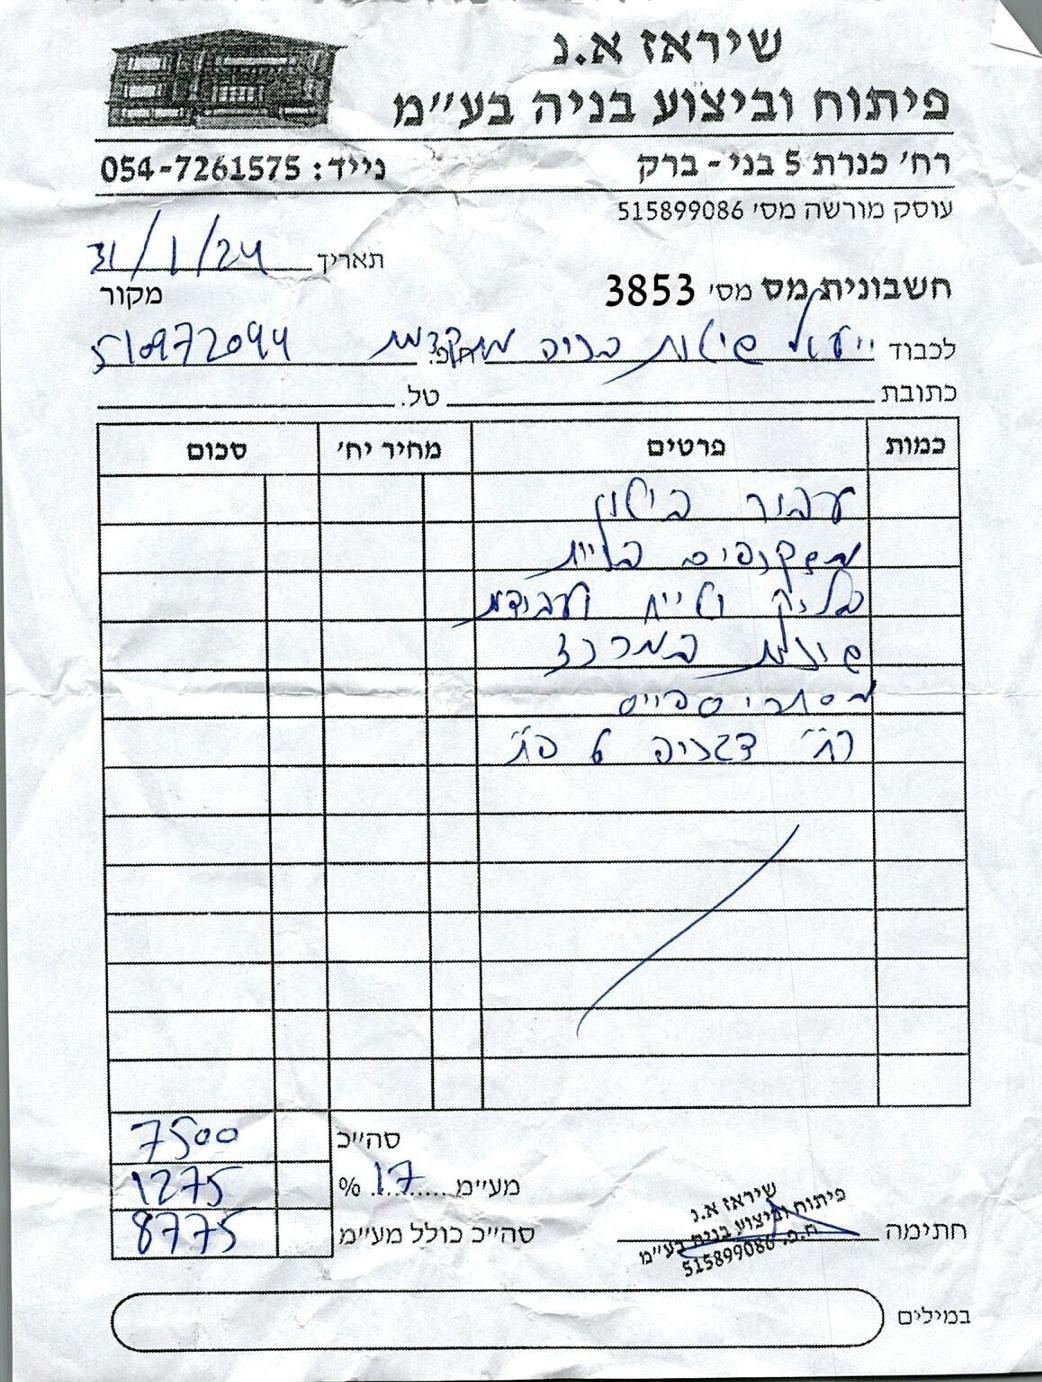 שיראז א.נ
פיתוח וביצוע בניה בע"מ
רח' כנרת 5 בני - ברק
נייד: 054-7261575
עוסק מורשה מס' 515899086
תאריך 31/1/24
חשבונית מס מס' 3853
מקור
לכבוד ייעאל שיטות בניה מתקדמת ח.פ. 510972094
כתובת טל.
כמות פרטים מחיר יח' סכום
עבור
משקופים
ועבודת
שונות במרכז
רח' דגניה 6 פת
סה"כ 7500
מע"מ 17 % 1275
סה"כ כולל מע"מ 8775
חתימה
שיראז א.נ
פיתוח וביצוע בניה בע"מ
ח.פ. 515899086
במילים